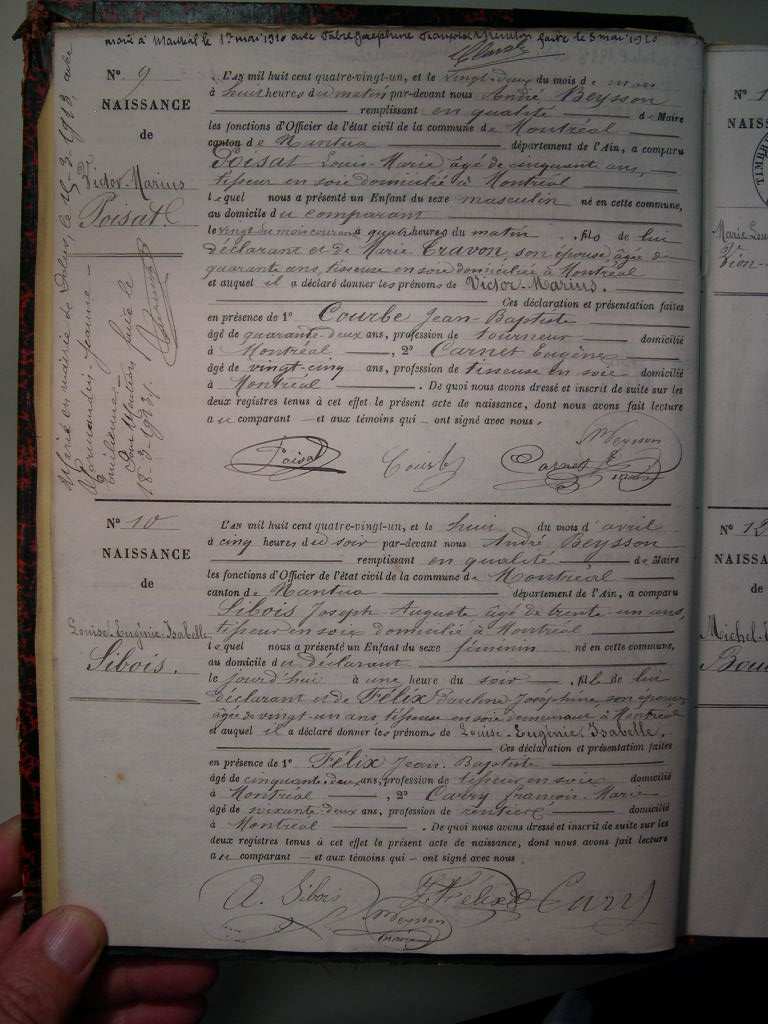 marié à Montréal le 1er mai 1910 avec Fabre Joséphine Françoise faite le 3 mai 1910
N° 9
NAISSANCE
de
Victor-Marius
Poisat.
Marié en mairie de le 15-3-1913, avec
Jeanne -
Emilienne
Pour Mention faite le
18-3-1913.
L'AN mil huit cent quatre-vingt-un, et le vingt-deux du mois de mars
à heures du matin par-devant nous André Beysson
remplissant en qualité de Maire
les fonctions d'Officier de l'état civil de la commune de Montréal
canton de Nantua département de l'Ain, a comparu
Poisat Louis-Marie, âgé de cinquante ans,
tisseur en soie domicilié à Montréal
lequel nous a présenté un Enfant du sexe masculin né en cette commune,
au domicile du comparant
le vingt du mois courant à quatre heures du matin, fils de lui
déclarant et de Marie Cravon, son épouse âgée de
quarante ans, tisseuse en soie domiciliée à Montréal
et auquel il a déclaré donner les prénoms de Victor-Marius.
Ces déclaration et présentation faites
en présence de 1° Courbe Jean-Baptiste
âgé de quarante-deux ans, profession de tourneur domicilié
à Montréal, 2° Carnet Eugène
âgé de vingt-cinq ans, profession de tisseuse en soie domicilié
à Montréal. De quoi nous avons dressé et inscrit de suite sur les
deux registres tenus à cet effet le présent acte de naissance, dont nous avons fait lecture
au comparant - et aux témoins qui - ont signé avec nous.
Beysson
Poisat Courbe Carnet
N° 10
NAISSANCE
de
Louise-Eugénie-Isabelle
Sibois.
L'AN mil huit cent quatre-vingt-un, et le huit du mois d'avril
à cinq heures du soir par-devant nous André Beysson
remplissant en qualité de Maire
les fonctions d'Officier de l'état civil de la commune de Montréal
canton de Nantua département de l'Ain, a comparu
Sibois Joseph-Auguste âgé de trente-un ans,
tisseur en soie domicilié à Montréal
lequel nous a présenté un Enfant du sexe féminin né en cette commune,
au domicile du déclarant
le jourd'hui à une heure du soir, fille de lui
déclarant et de Félix Pauline Joséphine, son épouse
âgée de vingt-un ans tisseuse en soie demeurant à Montréal
et auquel il a déclaré donner les prénoms de Louise-Eugénie-Isabelle.
Ces déclaration et présentation faites
en présence de 1° Félix Jean-Baptiste
âgé de cinquante-deux ans, profession de tisseur en soie domicilié
à Montréal, 2° Carry François-Marie
âgé de soixante-deux ans, profession de rentier domicilié
à Montréal. De quoi nous avons dressé et inscrit de suite sur les
deux registres tenus à cet effet le présent acte de naissance, dont nous avons fait lecture
au comparant - et aux témoins qui - ont signé avec nous.
A. Sibois Félix Carry
Beysson
N° 1
NAISS
TIMBRE
Marie Lou
N° 12
NAISSA
de
Michel-
Bou